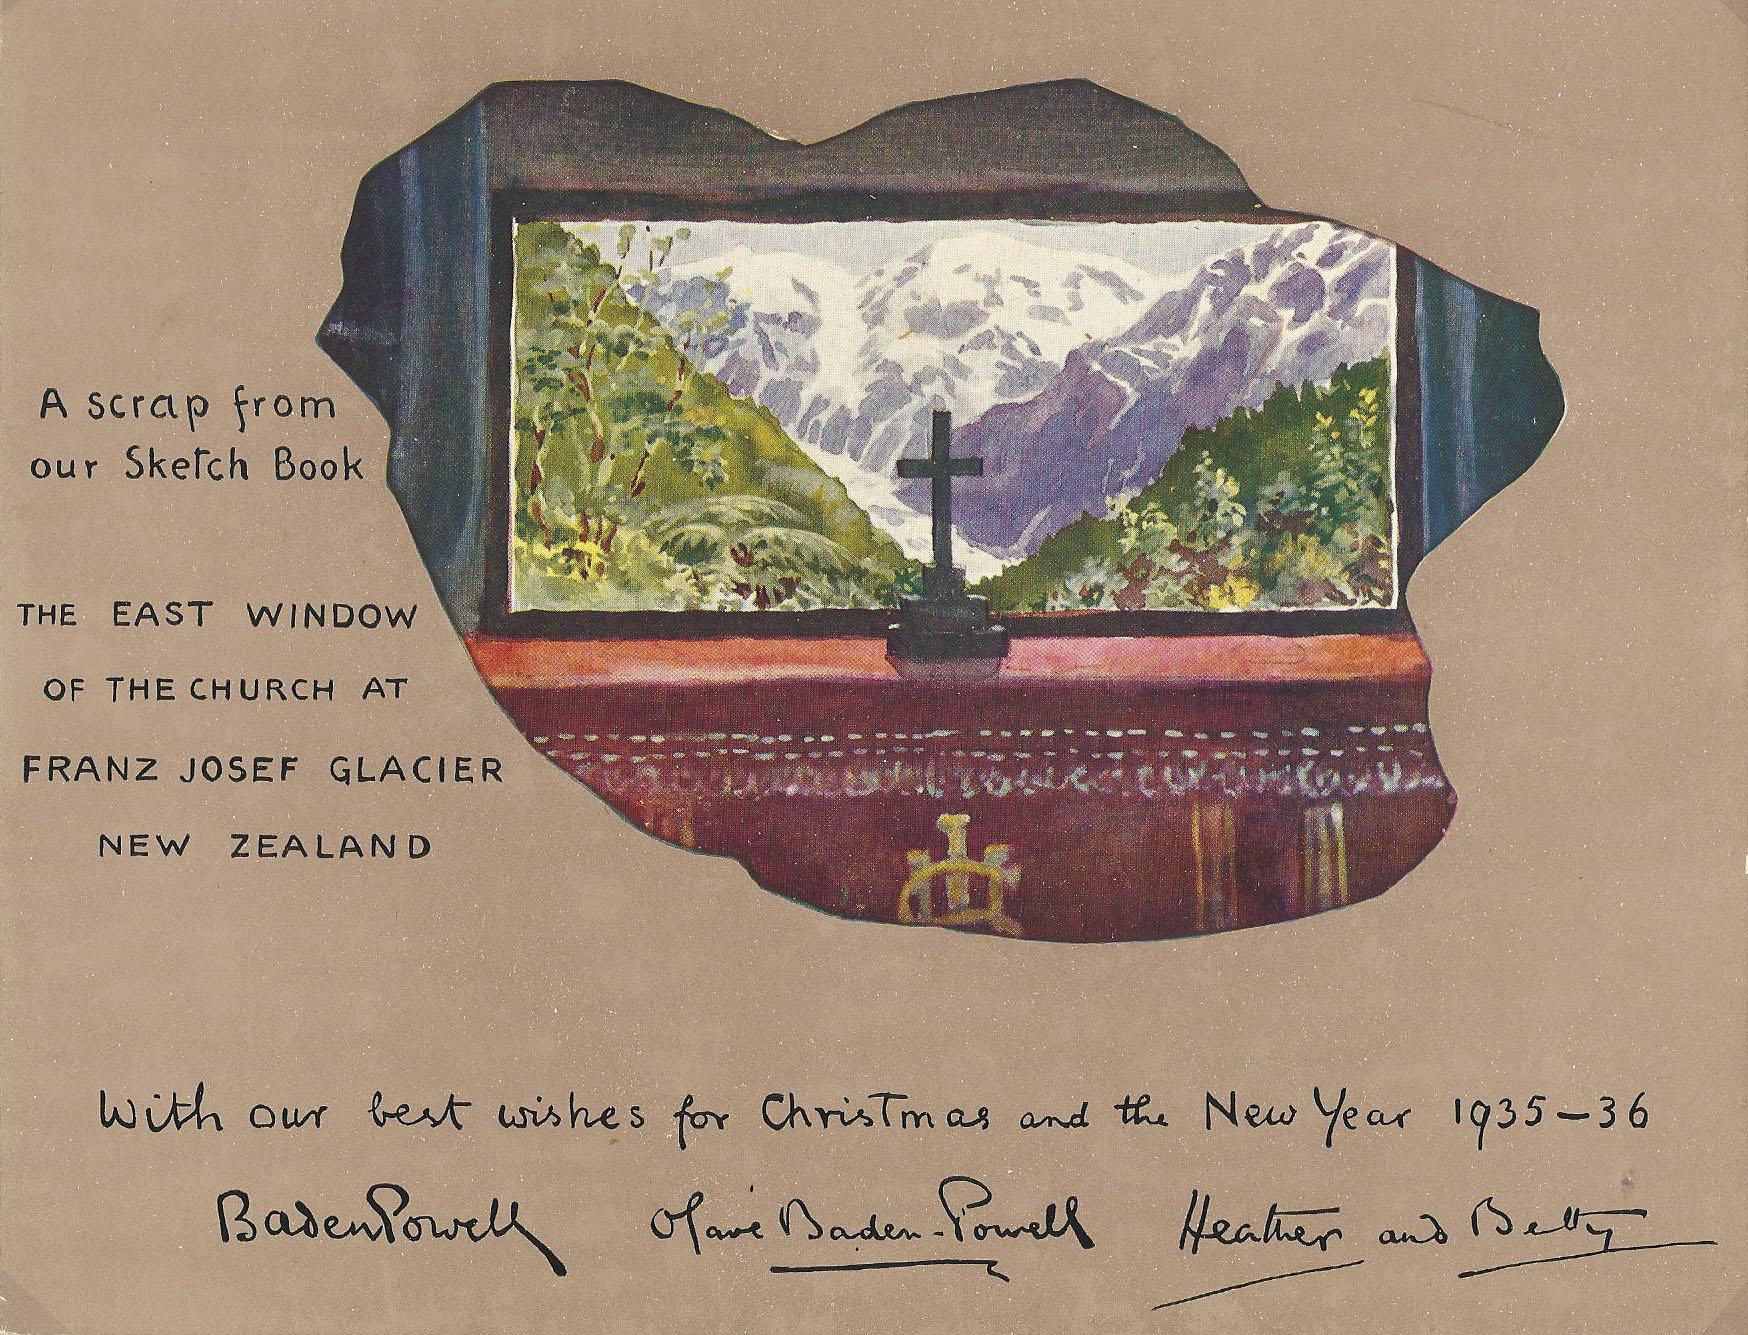 A scrap from
our Sketch Book
THE EAST WINDOW
OF THE CHURCH AT
FRANZ JOSEF GLACIER
NEW ZEALAND
With our best wishes for Christmas and the New Year 1935-36
Baden Powell Olave Baden-Powell Heather and Betty